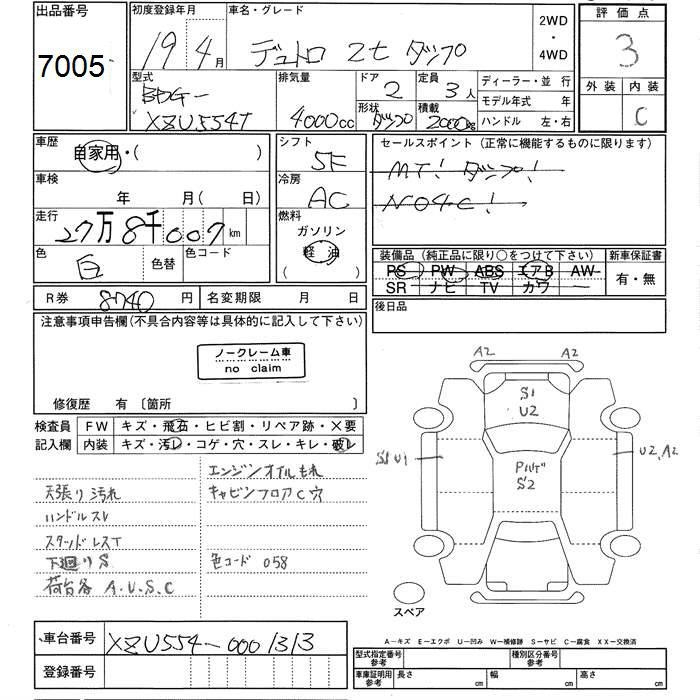 出品番号
7005
初度登録年月
19年 4月
車名・グレード
デュトロ 2t ダンプ
2WD
・
4WD
評価点
3
外装 内装
C
型式
BDG-
XZU554T
排気量
4000cc
ドア
2
定員
3人
形状
ダンプ
積載
2000kg
ディーラー・並行
モデル年式 年
ハンドル 左・右
車歴
自家用・( )
シフト
5F
セールスポイント(正常に機能するものに限ります)
MT! ダンプ!
N04C!
車検
年 月( 日)
冷房
AC
走行
27万8千007km
燃料
ガソリン
軽油
色
白
色替
色コード
装備品(純正品に限り○をつけて下さい)
PS PW ABS エアB AW
SR ナビ TV カワ
新車保証書
有・無
R券 8740円
名変期限 月 日
後日品
注意事項申告欄(不具合内容等は具体的に記入して下さい)
ノークレーム車
no claim
修復歴 有 〔箇所 〕
検査員
記入欄
FW キズ・飛石・ヒビ割・リペア跡・X要
内装 キズ・汚レ・コゲ・穴・スレ・キレ・破レ
天張り汚れ
ハンドルスレ
下廻りS
荷台各 A.U.S.C
エンジンオイルもれ
キャビンフロアC穴
色コード 058
A2 A2
S1
U2
S1 U1
S2
U2, A2
スペア
A-キズ E-エクボ U-凹み W-補修跡 S-サビ C-腐食 XX-交換済
車台番号 XZU554-0001313
登録番号
型式指定番号
参考
種別区分番号
参考
車庫証明用
参考
長さ cm 幅 cm 高さ cm